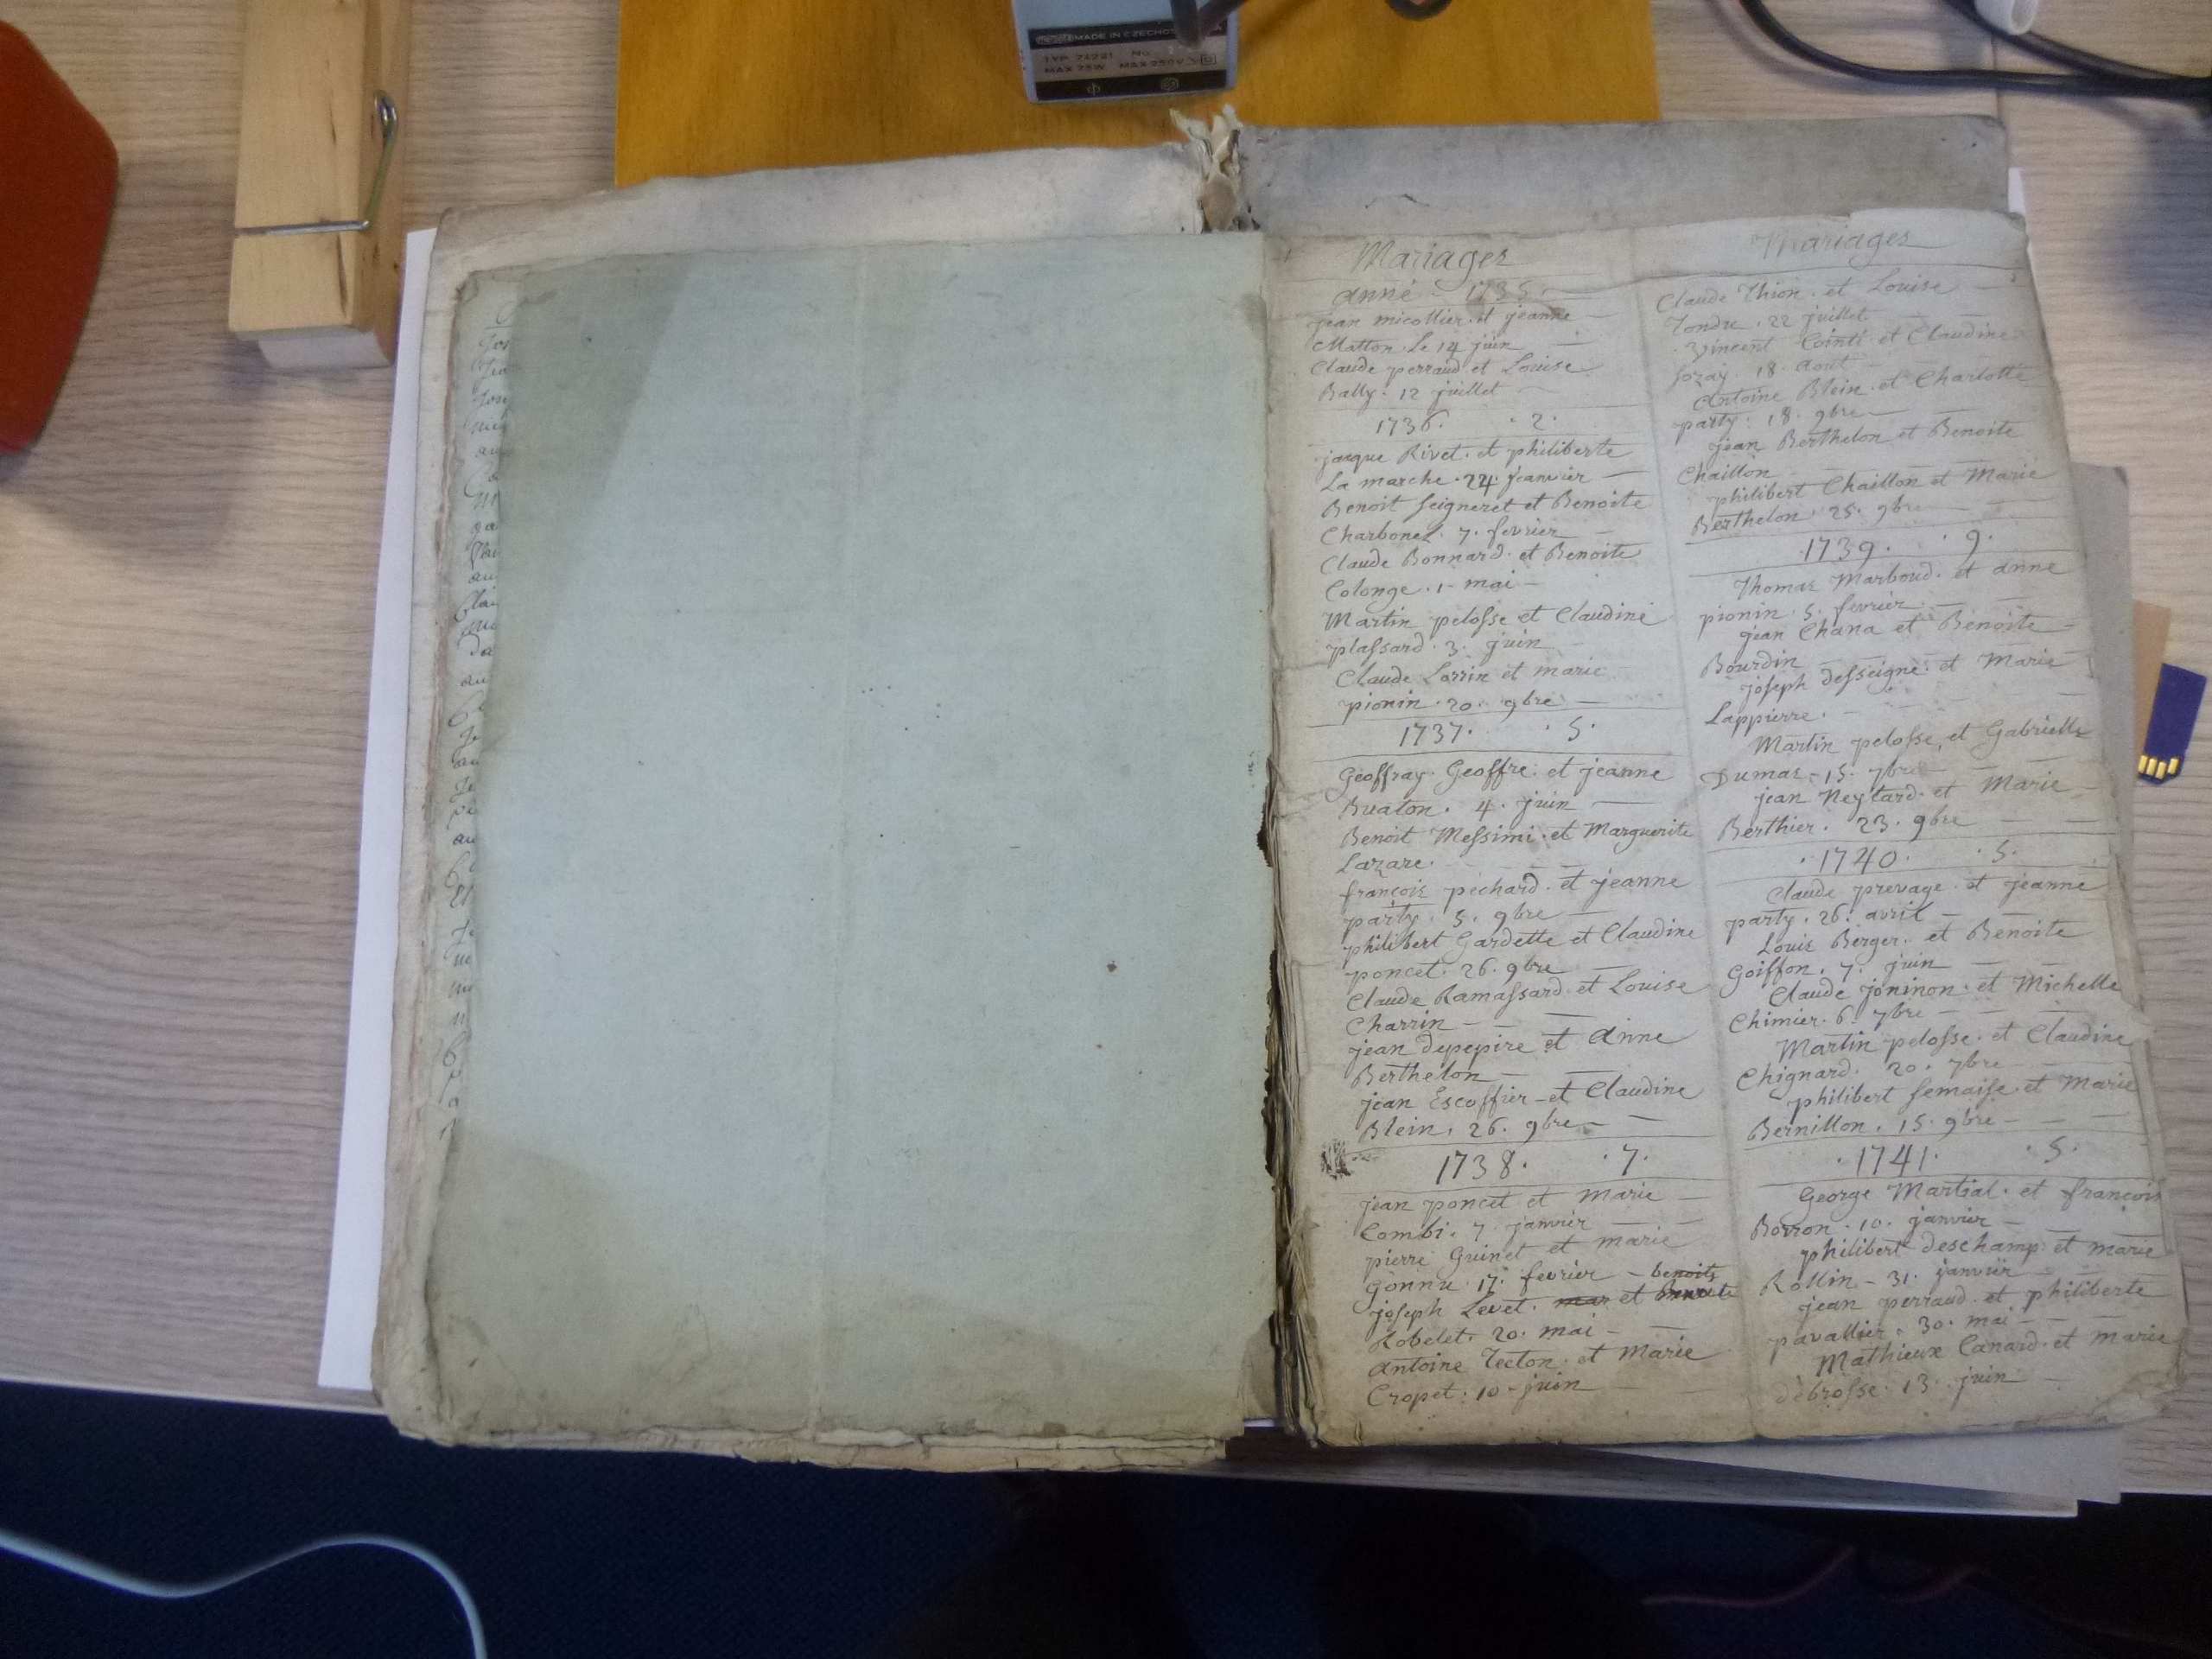 MADE IN CZECHOS
TYP 24221 No.
MAX 75W MAX 250V
Mariages
anné - 1735
jean micollier et jeanne
Matton Le 14 juin
Claude perraud et Louise
Bally. 12 juillet
1736. . 2.
jacque Rivet. et philiberte
La marche. 24. jeanvier
Benoit seigneret et Benoite
Charbonet. 7. fevrier
Claude Bonnard. et Benoite
Colonge. 1 - mai -
Martin pelosse et Claudine
plassard. 3. juin
Claude Larrin et marie
pionin. 20. 9bre
1737. . 5.
Geoffray. Geoffre. et jeanne
Buaton. 4. juin
Benoit Messimi. et Marguerite
Lazare.
françois péchard. et jeanne
party. 5. 9bre
philibert Gardette et Claudine
poncet. 26. 9bre
Claude Ramassard et Louise
Charrin
jean depepire et anne
Berthelon
jean Escoffier - et Claudine
Blein. 26. 9bre
1738. . 7.
jean poncet et marie
Combi. 7 janvier
pierre Guinet et marie
gonnu 17. fevrier - benoite
joseph Levet. mar et
Robelet. 20. mai -
antoine Tecton. et Marie
Cropet. 10 - juin
Mariages
Claude Thion. et Louise
Tondu. 22 juillet
Vincent Cointi et Claudine
18. aout
Antoine Blein. et Charlotte
party. 18. 9bre
jean Berthelon et Benoite
Chaillon
philibert Chaillon et Marie
Berthelon. 25. 9bre
.1739. . 9.
Thomas Marboud. et anne
pionin. 5. fevrier
jean Chana et Benoite
Bourdin
joseph desseigne. et Marie
Lappierre.
Martin pelosse, et Gabrielle
Dumas. 15. 7bre
jean Neytard. et Marie
Berthier. 23. 9bre
. 1740. . 5.
Claude prevage. et jeanne
party. 26. avril
Louis Berger. et Benoite
Goiffon. 7. juin
Claude joninon. et Michelle
Chimier. 6. 7bre
Martin pelosse. et Claudine
Chignard. 20. 7bre
philibert semaise. et Marie
Bernillon. 15. 9bre
. 1741. . 5.
George Martial. et françois
Borron. 10. janvier
philibert deschamp et marie
Rollin - 31. janvier
jean perraud. et philiberte
pavallier. 30. mai
Mathieux Canard. et marie
debrosse. 13. juin